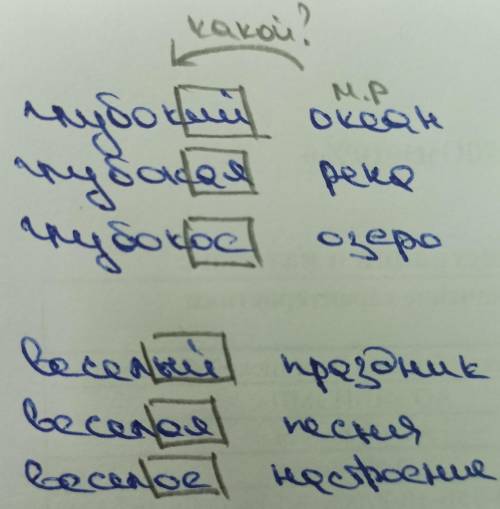 какой?
м.р
глубокий океан
глубокая река
глубокое озеро
веселый праздник
веселая песня
веселое настроение